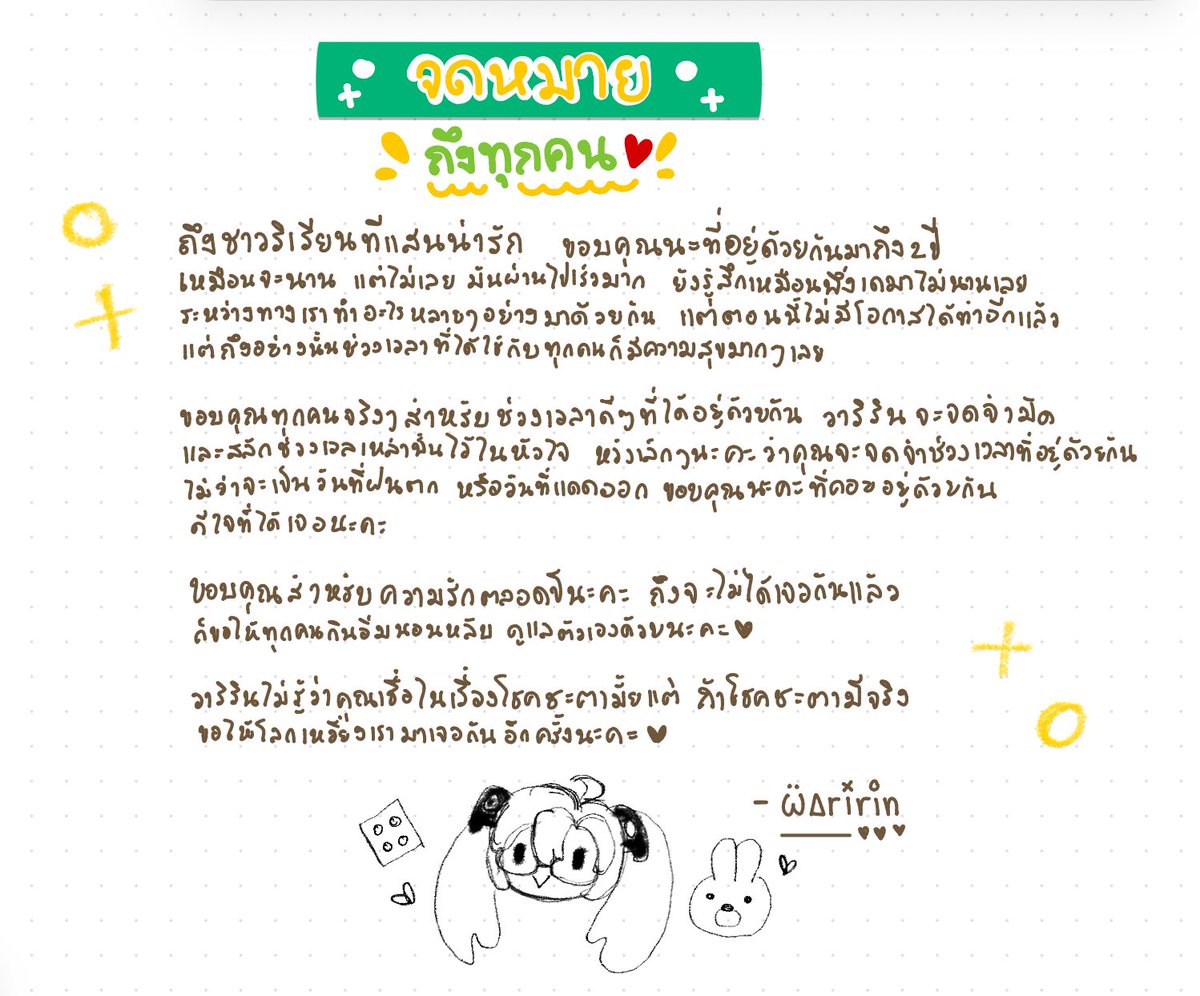 จดหมาย
ถึงทุกคน
ถึงชาวริเรียนที่แสนน่ารัก ขอบคุณนะที่อยู่ด้วยกันมาถึง 2 ปี
เหมือนจะนาน แต่ไม่เลย มันผ่านไปเร็วมาก ยังรู้สึกเหมือนพึ่งเดมาไม่นานเลย
ระหว่างทางเราทำอะไรหลายๆอย่างมาด้วยกัน แต่ตอนนี้ไม่มีโอกาสได้ทำอีกแล้ว
แต่ถึงอย่างนั้นช่วงเวลาที่ได้ใช้กับทุกคนก็มีความสุขมากๆเลย
ขอบคุณทุกคนจริงๆสำหรับช่วงเวลาดีๆที่ได้อยู่ด้วยกัน วาริรินจะจดจำมัน
และสลักช่วงเวลาเหล่านั้นไว้ในหัวใจ หวังเล็กๆนะคะว่าคุณจะจดจำช่วงเวลาที่อยู่ด้วยกัน
ไม่ว่าจะเป็นวันที่ฝนตก หรือวันที่แดดออก ขอบคุณนะคะที่คอยอยู่ด้วยกัน
ดีใจที่ได้เจอนะคะ
ขอบคุณสำหรับความรักตลอดปีนะคะ ถึงจะไม่ได้เจอกันแล้ว
ก็ขอให้ทุกคนกินอิ่มนอนหลับ ดูแลตัวเองด้วยนะคะ
วาริรินไม่รู้ว่าคุณเชื่อในเรื่องโชคชะตามั้ยแต่ ถ้าโชคชะตามีจริง
ขอให้โลกเหวี่ยงเรามาเจอกันอีกครั้งนะคะ
- waririn